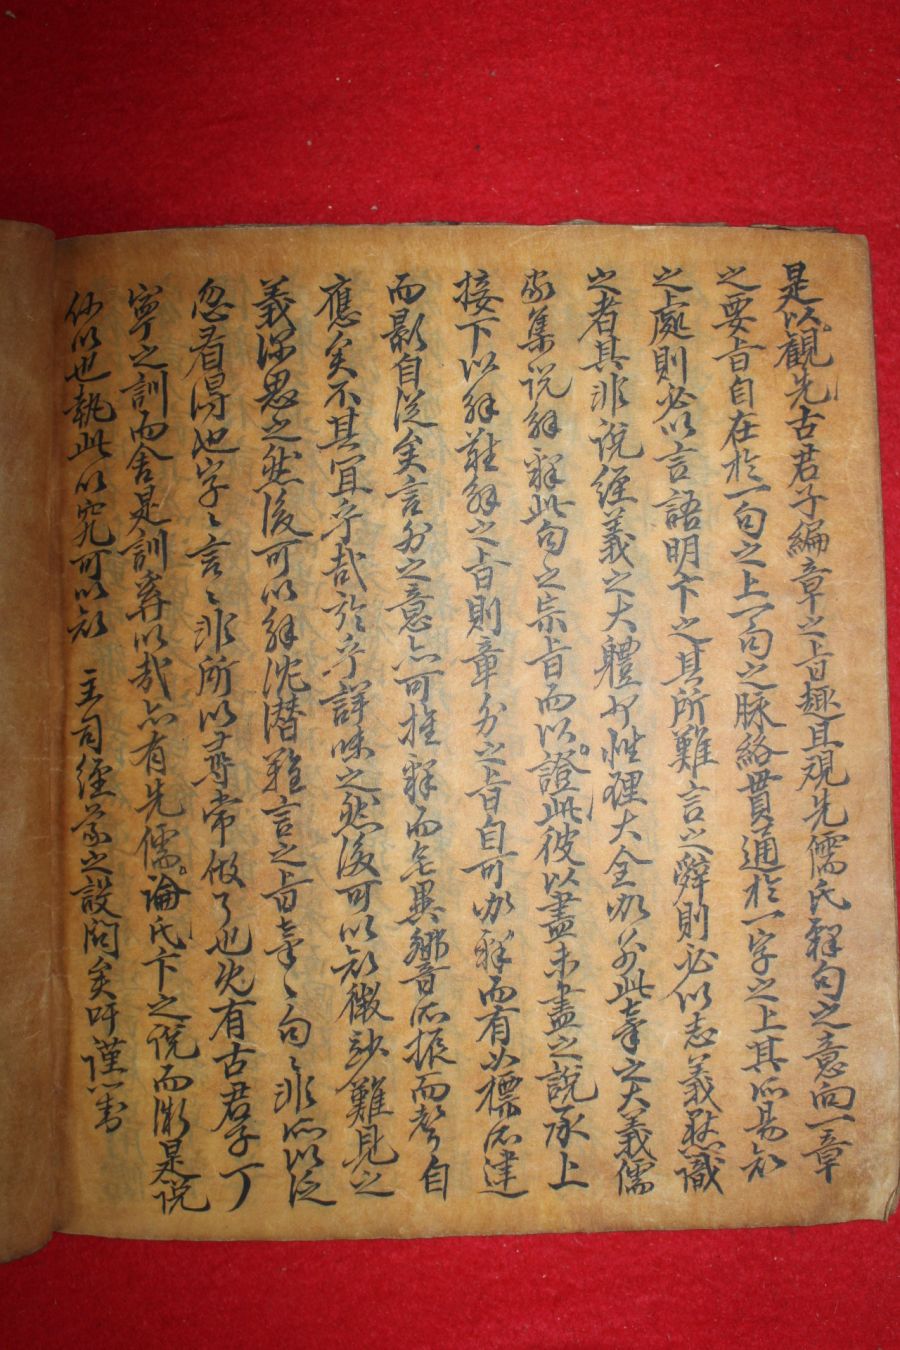 是以觀先古君子編章之旨趣且观先儒氏釋句之意向一章
之要旨自在於一句之上一句之脉絡貫通於一字之上其所易知
之處則必以言語明卞之其所難言之辭則必似志義默識
之者其非說經義之大體也性理大全此章之大義儒
家集说解釋此句之宗旨而以證此彼以盡未盡之說承上
接下以解難解之旨則章外之旨自可釋而有必標
而影自從矣言外之意亦可推釋而響所振而自
應矣不其宜乎哉於乎詳味之然後可以知微玅難見之
義深思之然後可以解沈潜難言之旨章〻句〻非所以泛
忽看淂也字〻言〻非所以尋常做了也况有古君子丁
寧之訓而舍是訓奚以哉亦有先儒氏論卞之說而微是说
何以也執此以究可以知 主司經義之設问矣吁謹對